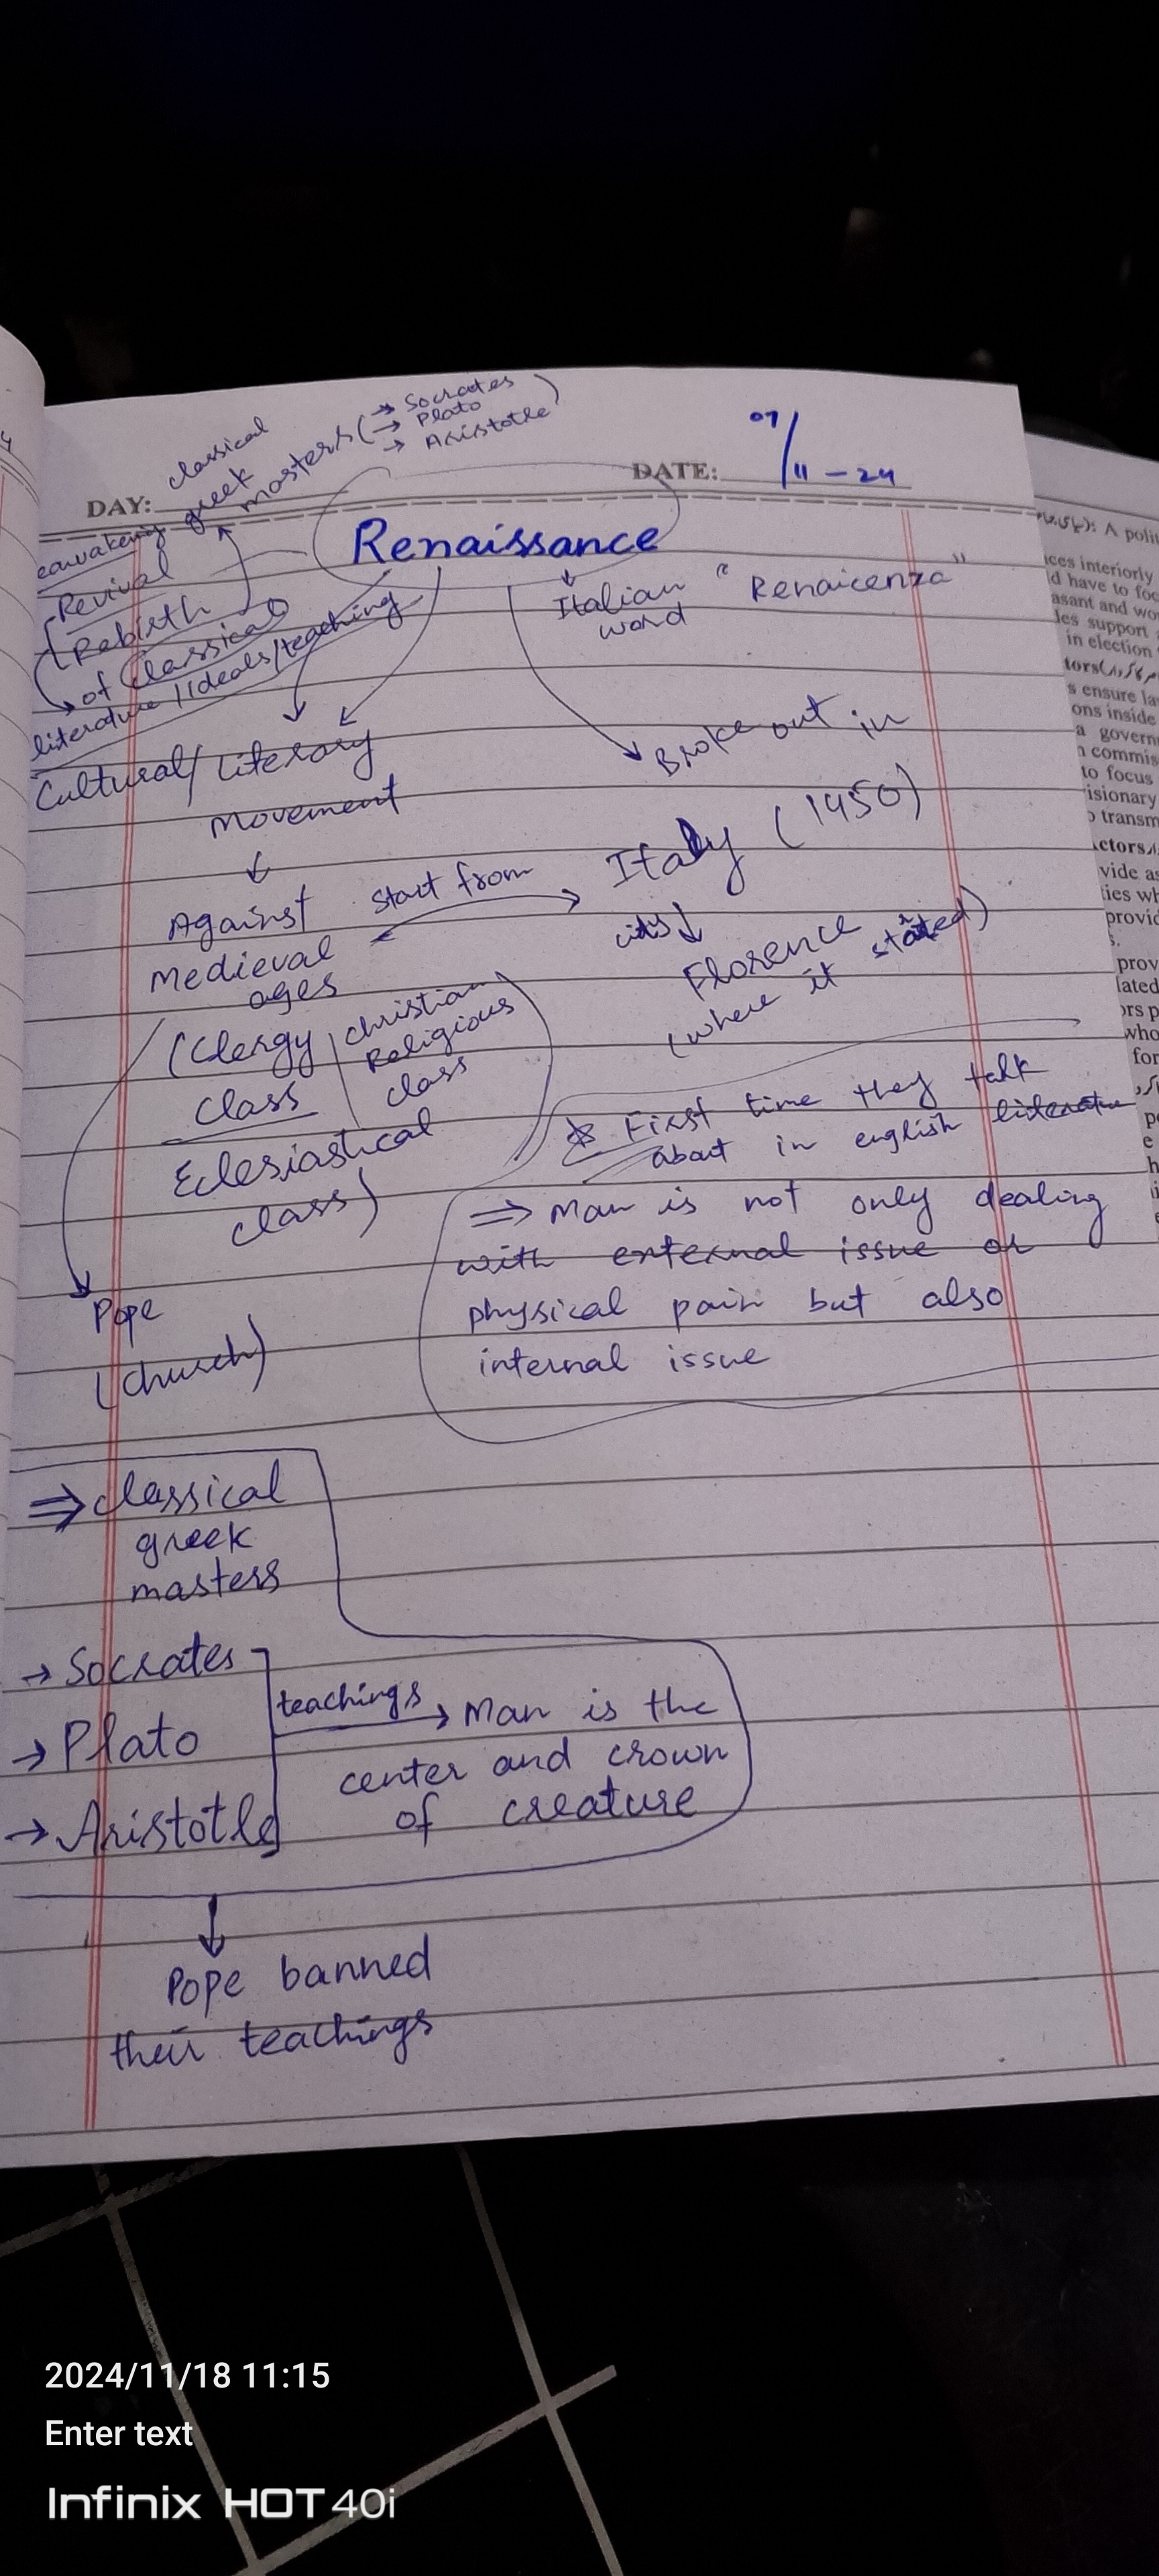 classical
greek
masters (→ Socrates
→ Plato
→ Aristotle)
DAY:
DATE: 07/11-24
Renaissance
eawakening
Revival
Rebirth
of classical
literature / Ideals/teaching
Italian
word
"Renaicenza"
Cultural/ Literary
Movement
Broke out in
Italy (1450)
Against
Medieval
ages
start from
city
Florence
(where it started)
(Clergy
class
christian
Religious
class
Eclesiastical
class)
First time they talk
about in english literature
⇒ Man is not only dealing
with external issue or
physical pain but also
internal issue
Pope
(church)
⇒ classical
greek
masters
→ Socrates
→ Plato
→ Aristotle
teachings → Man is the
center and crown
of creature
Pope banned
their teachings
): A polit
ces interiorly
d have to foc
asant and wo
les support
in election
tors(
s ensure la
ons inside
a govern
commis
to focus
isionary
transm
ctors
vide as
ties wh
provid
s.
prov
lated
ors p
who
for
2024/11/18 11:15
Enter text
Infinix HOT 40i